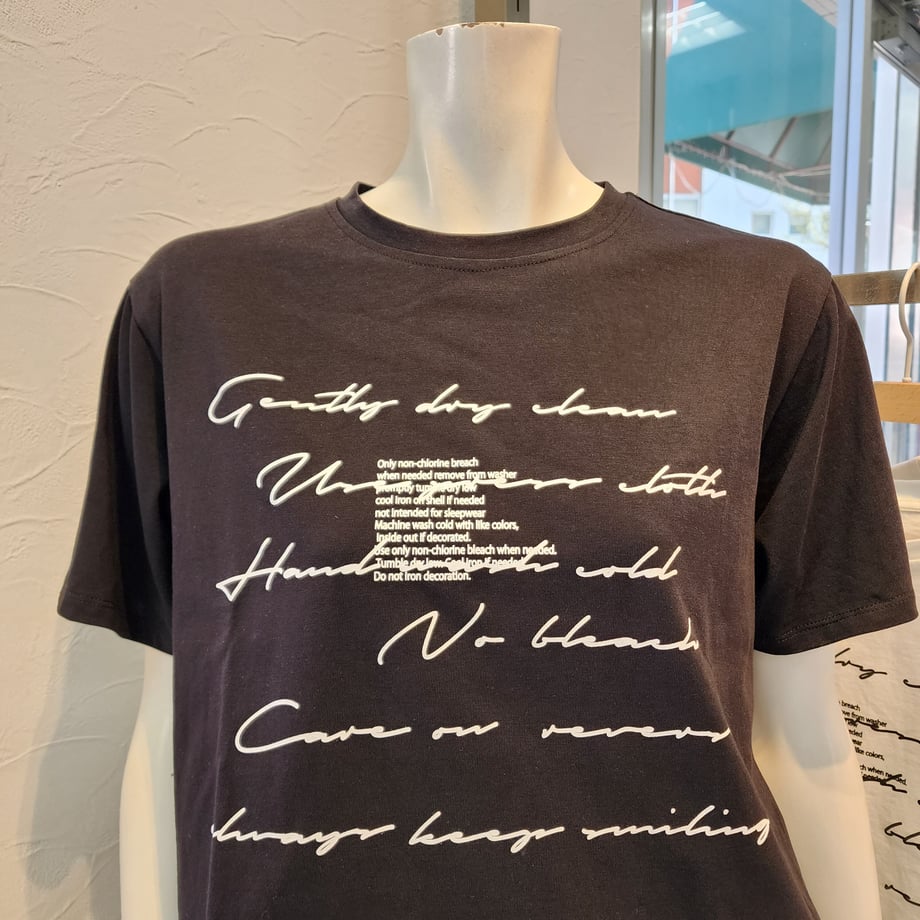 Gently dry clean
Only non-chlorine breach
when needed remove from washer
cloth
promptly tumble dry low
cool iron on shell if needed
not intended for sleepwear
Machine wash cold with like colors,
inside out if decorated.
Use only non-chlorine bleach when needed.
Tumble dry low. Cool iron if needed
Hand wash cold
Do not iron decoration.
No bleach
Care on revers
always keep smiling